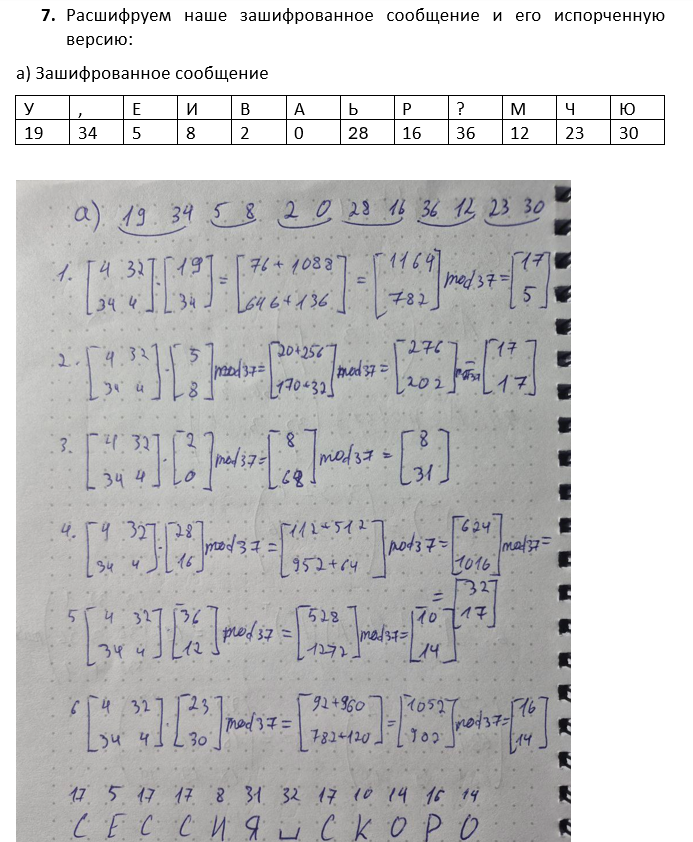 7. Расшифруем наше зашифрованное сообщение и его испорченную
версию:
а) Зашифрованное сообщение
У , Е И В А Ь Р ? М Ч Ю
19 34 5 8 2 0 28 16 36 12 23 30
а) 19 34 5 8 2 0 28 16 36 12 23 30
1. [4 32 34 4] · [19 34] = [76+1088 646+136] = [1164 782] mod37 = [17 5]
2. [4 32 34 4] · [5 8] mod37 = [20+256 170+32] mod37 = [276 202] mod37 = [17 17]
3. [4 32 34 4] · [2 0] mod37 = [8 68] mod37 = [8 31]
4. [4 32 34 4] · [28 16] mod37 = [112+512 952+64] mod37 = [624 1016] mod37 =
= [32 17]
5 [4 32 34 4] · [36 12] mod37 = [528 1272] mod37 = [10 14]
6 [4 32 34 4] · [23 30] mod37 = [92+960 782+120] = [1052 902] mod37 = [16 14]
17 5 17 17 8 31 32 17 10 14 16 14
С Е С С И Я ␣ С К О Р О